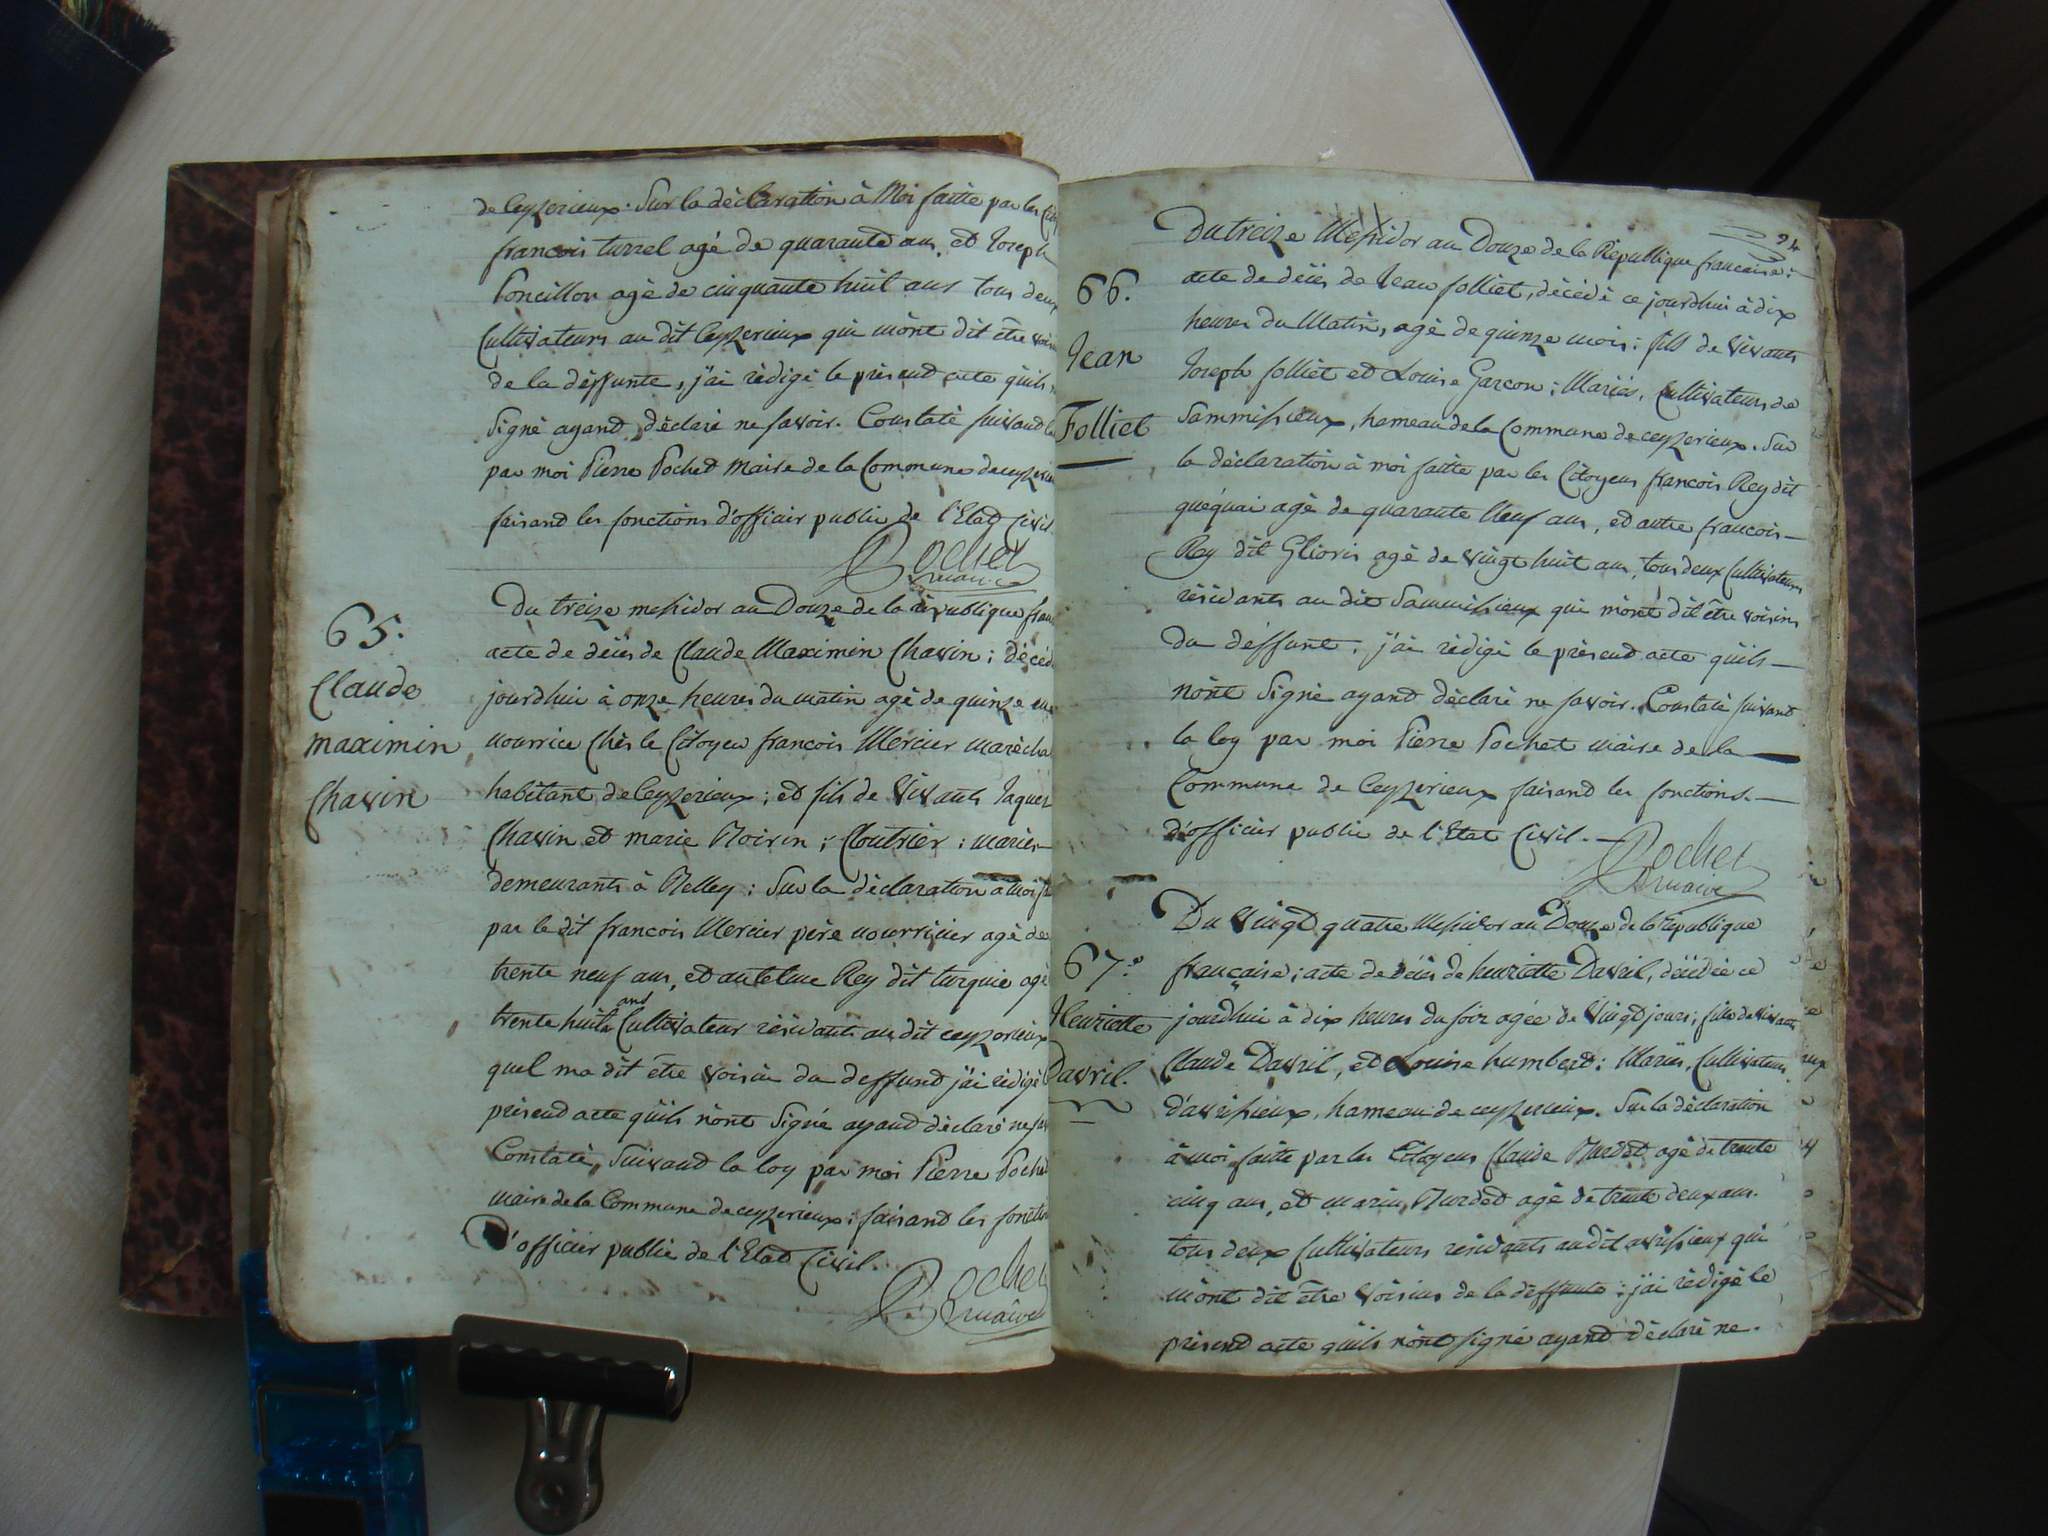 de Ceyzerieux. Sur la dèclaration à Moi faitte par les
francois turrel agé de quarante ans, et Joseph
Poncillon agè de cinquante huit ans tous deux
Cultivateurs au dit Ceyzerieux qui mònt dit ètre
de la dèffunte, j'ai rèdigè le prèsend acte qùils
Signè ayand dèclarè ne savoir. Constatè suivand
par moi Pierre Pochet Maire de la Commune de
faisand les fonctions d'officier public de l'Etat Civil.
Pochet
maire
65.
Claude
maximin
Chavin
Du treize messidor an Douze de la rèpublique
acte de dècès de Claude Maximin Chavin ; dècèd
jourdhui à onze heures du matin agè de quinze
nourrice Chès le Citoyen francois Mercier marècha
habitant de Ceyzerieux ; et fils de Vivants Jaques
Chavin et marie Noirin ; Cloutrier : mariès
demeurants à Belley : Sur la dèclaration à moi
par le dit francois Mercier père nourricier agè de
trente neuf ans, et antelme Rey dit turquie agè
trente huit ans Cultivateur rèsidants au dit ceyzerieux
quel ma dit ètre voisin du deffund j'ai rèdigè
prèsend acte qùils nònt Signé ayand dèclarè ne
Constatè, Suivand la loy par moi Pierre Pochet
maire de la Commune de ceyzerieux : faisand les
D'officier public de l'Etat Civil.
Pochet
maire
94
66.
Jean
Folliet
Du treize Messidor an Douze de la Rèpublique francaise :
acte de dècès de Jean folliet, dècèdè ce jourdhui à dix
heures du Matin, agè de quinze mois : fils de vivants
Joseph folliet et Louise Garcon ; Mariès, Cultivateurs de
Sammissieux, hameau de la Commune de ceyzerieux. Sur
la dèclaration à moi faitte par les Citoyens francois Rey dit
quéquai agè de quarante Neuf ans, et autre francois
Rey dit Glioris agè de vingt huit ans, tous deux Cultivateurs
rèsidants au dit Sammissieux qui mònt dit ètre voisins
du dèffunt ; j'ai rèdigè le prèsend acte qùils
nònt Signè ayand dèclarè ne savoir. Constatè suivand
la loy par moi Pierre Pochet maire de la
Commune de Ceyzerieux faisand les fonctions
d'officier public de l'Etat Civil.
Pochet
maire
67.e
Henriette
Davril.
Du vingt quatre Messidor an Douze de la rèpublique
française ; acte de dècès de henriette Davril, dècèdèe ce
jourdhui à dix heures du soir agée de Vingt jours ; fille de Vivants
Claude Davril, et Louise humbert : Mariès, Cultivateurs
d'avrissieux, hameau de ceyzerieux. Sur la dèclaration
à moi faitte par les Citoyens Claude Burdet agè de trente
cinq ans, et marin Burdet agè de trente deux ans.
tous deux Cultivateurs rèsidants audit avrissieux qui
mònt dit ètre Voisins de la dèffunte ; j'ai rèdigè le
prèsend acte qùils nònt signè ayand dèclarè ne